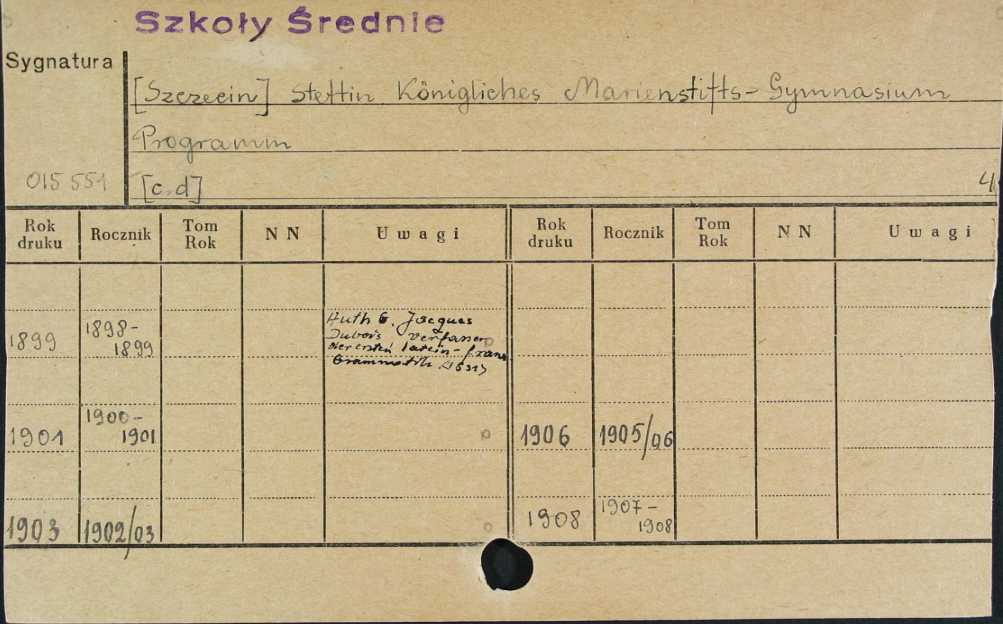 Szkoły Średnie
Sygnatura
[Szczecin] Stettin Königliches Marienstifts-Gymnasium
Programm
015 551 [c.d] 4
Rok druku Rocznik Tom Rok N N Uwagi Rok druku Rocznik Tom Rok N N Uwagi
1899 1898-1899 Huth G. Jacques
Dubois Verfasser
der ersten latein-franz
Grammatik (1531)
1901 1900-1901 1906 1905/06
1903 1902/03 1908 1907-1908